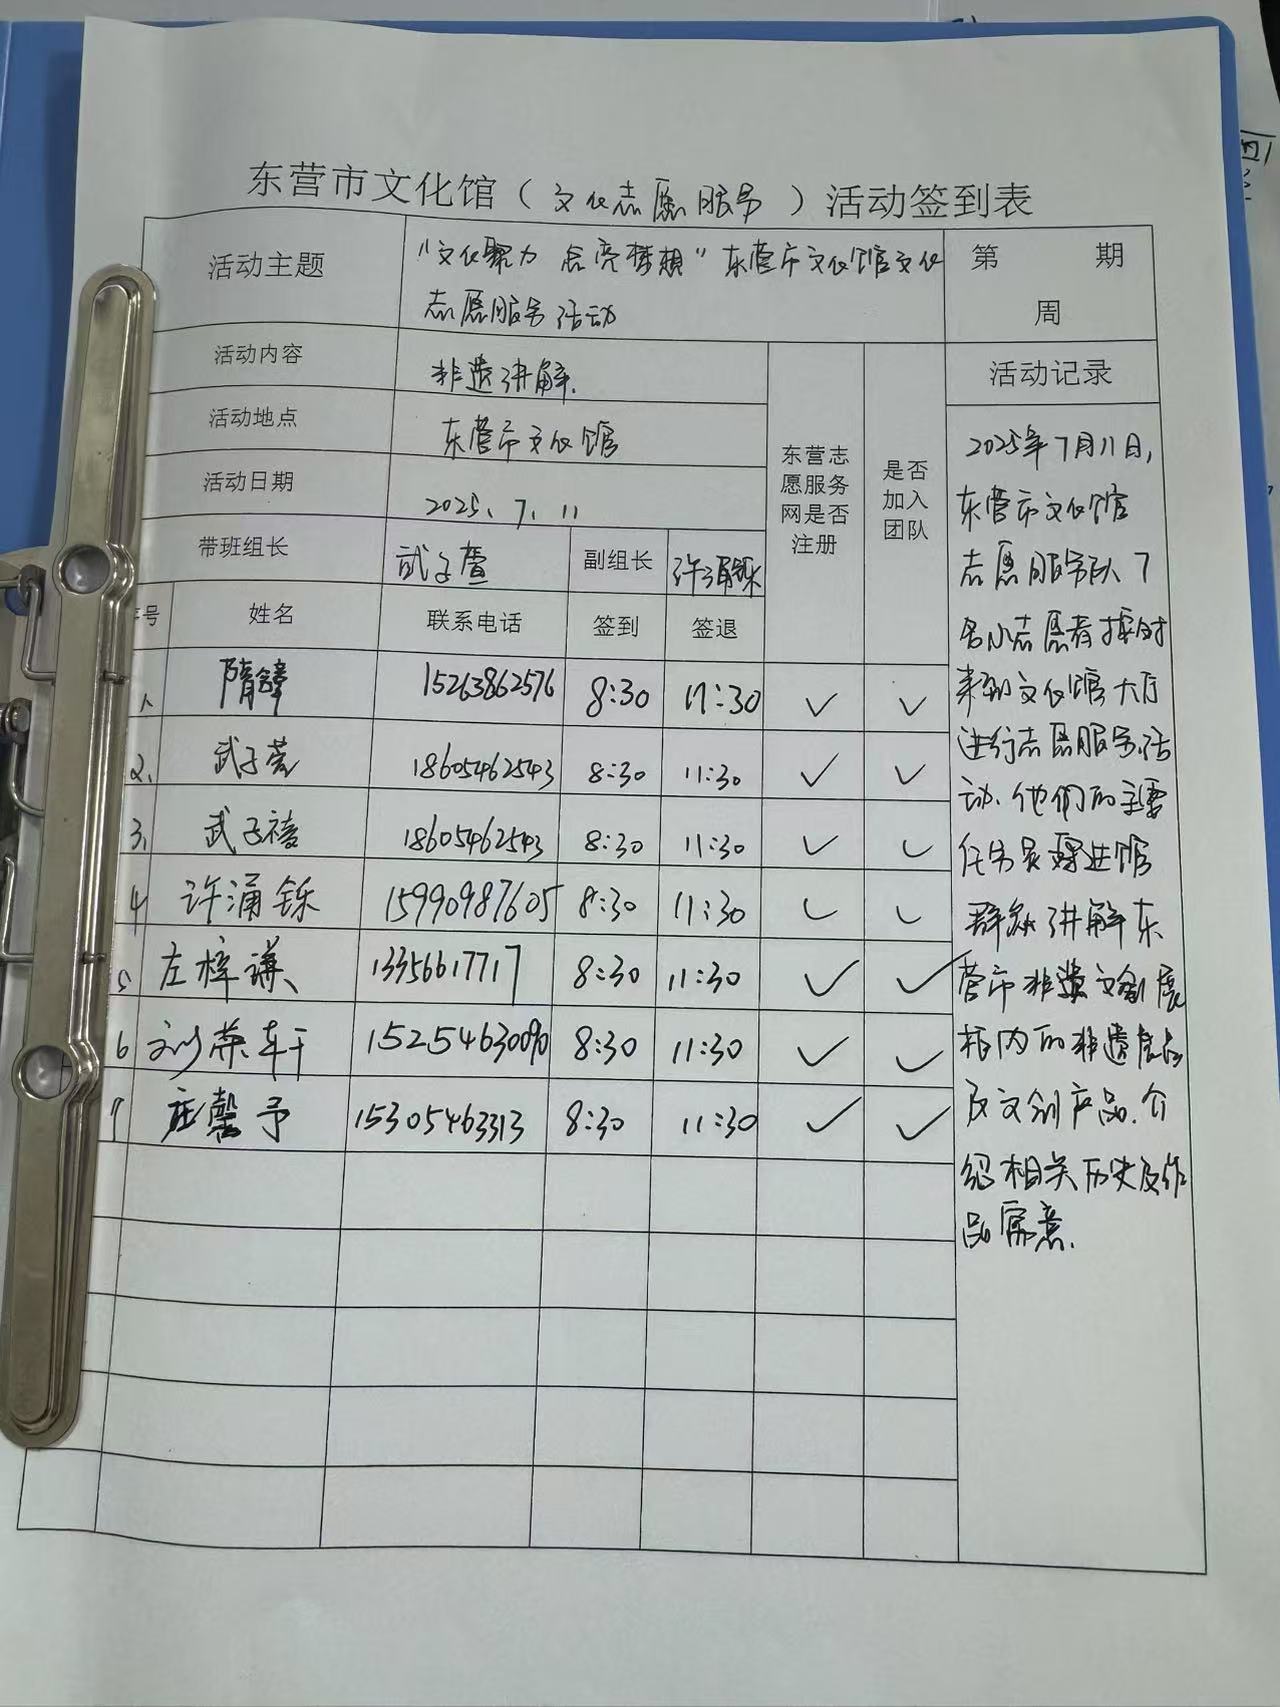 东营市文化馆（文化志愿服务）活动签到表
活动主题 "文化聚力 点亮梦想"东营市文化馆文化 第 期
志愿服务活动 周
活动内容 非遗讲解. 活动记录
活动地点 东营市文化馆
活动日期 2025.7.11
东营志愿服务网是否注册
是否加入团队
带班组长 武子萱 副组长 许涌铄
号 姓名 联系电话 签到 签退
1、 隋 15263862576 8:30 11:30 ✓ ✓
2、 武子萱 18605462543 8:30 11:30 ✓ ✓
3、 武子 18605462543 8:30 11:30 ✓ ✓
4 许涌铄 15990987605 8:30 11:30 ✓ ✓
5 左梓谦 13356617717 8:30 11:30 ✓ ✓
6 刘荣轩 8:30 11:30 ✓ ✓
7 庄馨予 15305463313 8:30 11:30 ✓ ✓
2025年7月11日,
东营市文化馆
志愿服务队7
名小志愿者按时
来到文化馆大厅
进行志愿服务活
动.他们的主要
任务是为进馆
群众讲解东
营市非遗文创展
柜内的非遗展品
及文创产品.介
绍相关历史及作
品寓意.